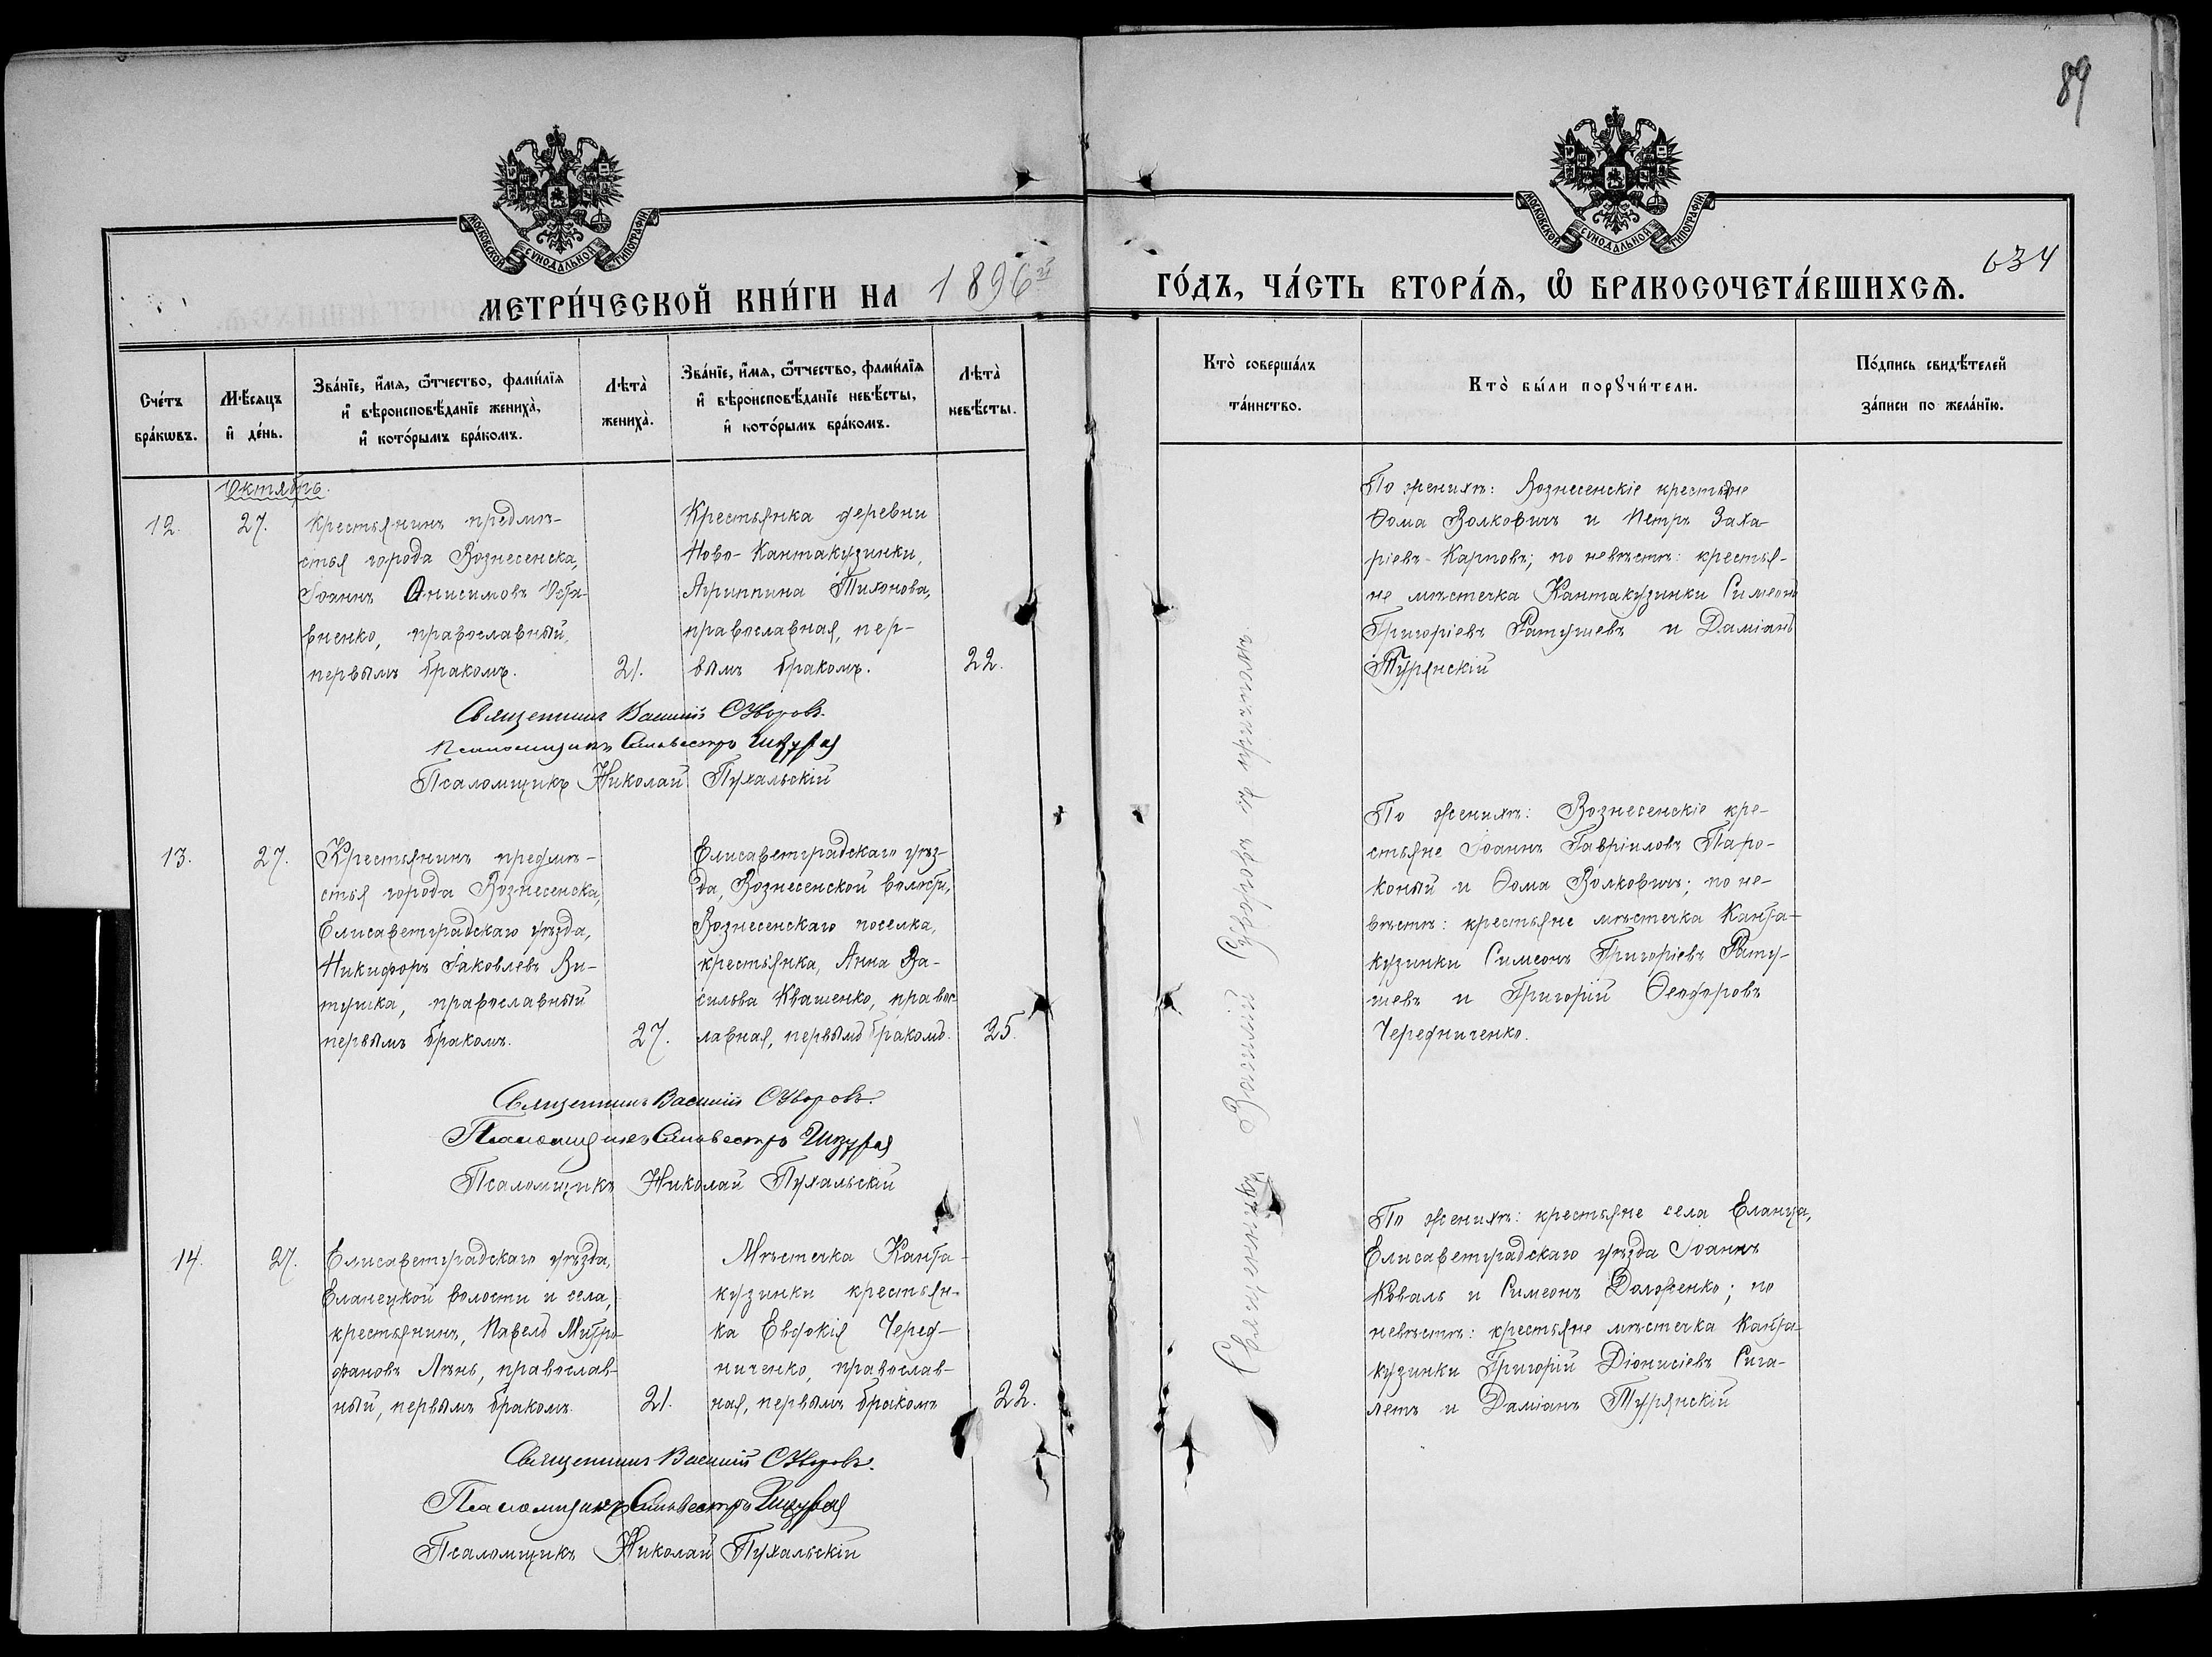 89
МОСКОВСКОЙ СѴНОДАЛЬНОЙ ТИПОГРАФІИ
МОСКОВСКОЙ СѴНОДАЛЬНОЙ ТИПОГРАФІИ
МЕТРИ́ЧЕСКОЙ КНИ́ГИ НА 1896й
ГО́ДЪ, ЧА́СТЬ ВТОРА́Ѧ, Ѽ БРАКОСОЧЕТА́ВШИХСѦ.
634
Сче́тъ бра́кѡвъ.
Мѣ́сяцъ и҆ де́нь.
Зва́нїе, и҆́мя, ѻ҆́тчество, фами́лїя
и҆ вѣроисповѣ́данїе жениха̀,
и҆ кото́рымъ бра́комъ.
Лѣта̀ жениха̀.
Зва́нїе, и҆́мя, ѻ҆́тчество, фами́лїя
и҆ вѣроисповѣ́данїе невѣ́сты,
и҆ кото́рымъ бра́комъ.
Лѣта̀ невѣ́сты.
Кто̀ соверша́лъ
та́инство.
Кто̀ бы́ли порꙋчи́тели.
По́дпись свидѣ́телей
за́писи по жела́нїю.
Октябрь.
12.
27.
Крестьянинъ предмѣ-
стья города Вознесенска,
Іоаннъ Анисимовъ Оста-
вненко, православный,
первымъ бракомъ.
21.
Крестьянка деревни
Ново-Кантакузинки,
Агриппина Тихонова,
православная, пер-
вымъ бракомъ.
22.
По женихѣ: Вознесенскіе крестьяне
Ѳома Волковичъ и Петръ Заха-
ріевъ Карповъ; по невѣстѣ: крестья-
не мѣстечка Кантакузинки Симеонъ
Григоріевъ Ратушевъ и Даміанъ
Турянскій
Священникъ Василій Суворовъ.
Псаломщикъ Сильвестръ
Псаломщикъ Николай Пухальскій
13.
27.
Крестьянинъ предмѣ-
стья города Вознесенска,
Елисаветградскаго уѣзда,
Никифоръ Іаковлевъ Ви-
тушка, православный
первымъ бракомъ.
27.
Елисаветградскаго уѣз-
да, Вознесенской волости,
Вознесенскаго поселка,
крестьянка, Анна Ва-
сильва Квашенко, правос
лавная, первымъ бракомъ.
25.
По женихѣ: Вознесенскіе кре-
стьяне Іоаннъ Гавріиловъ Паро-
коный и Ѳома Волковичъ; по не-
вѣстѣ: крестьяне мѣстечка Канта-
кузинки Симеонъ Григоріевъ Рату-
шевъ и Григорій Ѳеодоровъ
Чередниченко.
Священникъ Василій Суворовъ.
Псаломщикъ Сильвестръ
Псаломщикъ Николай Пухальскій
14.
27.
Елисаветградскаго уѣзда,
Еланецкой волости и села,
крестьянинъ, Павелъ Митро-
фановъ Лѣнь, православ-
ный, первымъ бракомъ.
21.
Мѣстечка Канта-
кузинки крестьян-
ка Евдокія Черед-
ниченко, православ-
ная, первымъ бракомъ
22.
По женихѣ: крестьяне села Еланца,
Елисаветградскаго уѣзда Іоаннъ
Коваль и Симеонъ Доложенко; по
невѣстѣ: крестьяне мѣстечка Канта-
кузинки Григорій Діонисіевъ Сига-
летъ и Даміанъ Турянскій
Священникъ Василій Суворовъ.
Псаломщикъ Сильвестръ
Псаломщикъ Николай Пухальскій
Священникъ Василій Суворовъ съ причтомъ.